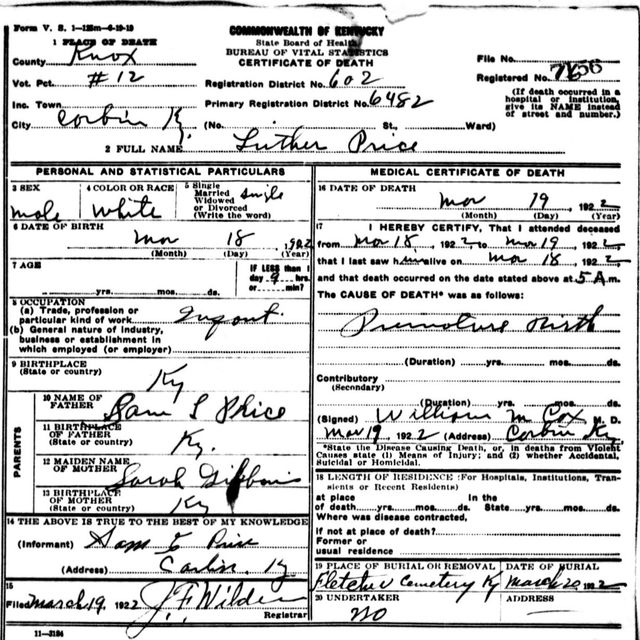 Form V. S. 1—125m—6-19-19
COMMONWEALTH OF KENTUCKY
State Board of Health
BUREAU OF VITAL STATISTICS
CERTIFICATE OF DEATH
1 PLACE OF DEATH
County Knox
Vot. Pct. #12
Inc. Town
City Corbin Ky.
Registration District No. 602
Primary Registration District No. 6482
(No. St. Ward)
File No.
Registered No. 7156
(If death occurred in a
hospital or institution,
give its NAME instead
of street and number.)
2 FULL NAME Luther Price
PERSONAL AND STATISTICAL PARTICULARS
3 SEX male
4 COLOR OR RACE White
5 Single
Married
Widowed
or Divorced
(Write the word)
6 DATE OF BIRTH
Mar 18, 1922
(Month) (Day) (Year)
7 AGE
yrs. mos. ds.
IF LESS than 1
day 9 hrs.
or min?
8 OCCUPATION
(a) Trade, profession or
particular kind of work Infant
(b) General nature of industry,
business or establishment in
which employed (or employer)
9 BIRTHPLACE
(State or country) Ky
PARENTS
10 NAME OF
FATHER Sam Price
11 BIRTHPLACE
OF FATHER
(State or country) Ky.
12 MAIDEN NAME
OF MOTHER Sarah
13 BIRTHPLACE
OF MOTHER
(State or country) Ky
14 THE ABOVE IS TRUE TO THE BEST OF MY KNOWLEDGE
(Informant) Sam Price
(Address) Corbin, Ky
15
Filed March 19, 1922 J F Wilder
Registrar
11—3184
MEDICAL CERTIFICATE OF DEATH
16 DATE OF DEATH
Mar 19, 1922
(Month) (Day) (Year)
17 I HEREBY CERTIFY, That I attended deceased
from Mar 18, 1922 to Mar 19, 1922,
that I last saw him alive on Mar 18, 1922
and that death occurred on the date stated above at 5 A.m.
The CAUSE OF DEATH* was as follows:
Premature Birth
(Duration) yrs. mos. ds.
Contributory
(Secondary)
(Duration) yrs. mos. ds.
(Signed) William M Cox M. D.
Mar 19 1922 (Address) Corbin Ky
*State the Disease Causing Death, or, in deaths from Violent
Causes state (1) Means of Injury; and (2) whether Accidental,
Suicidal or Homicidal.
18 LENGTH OF RESIDENCE (For Hospitals, Institutions, Transients or Recent Residents)
at place In the
of death yrs. mos. ds. State yrs. mos. ds.
Where was disease contracted,
if not at place of death?
Former or
usual residence
19 PLACE OF BURIAL OR REMOVAL
Fletcher Cemetery Ky
DATE OF BURIAL
March 20, 1922
20 UNDERTAKER
no
ADDRESS